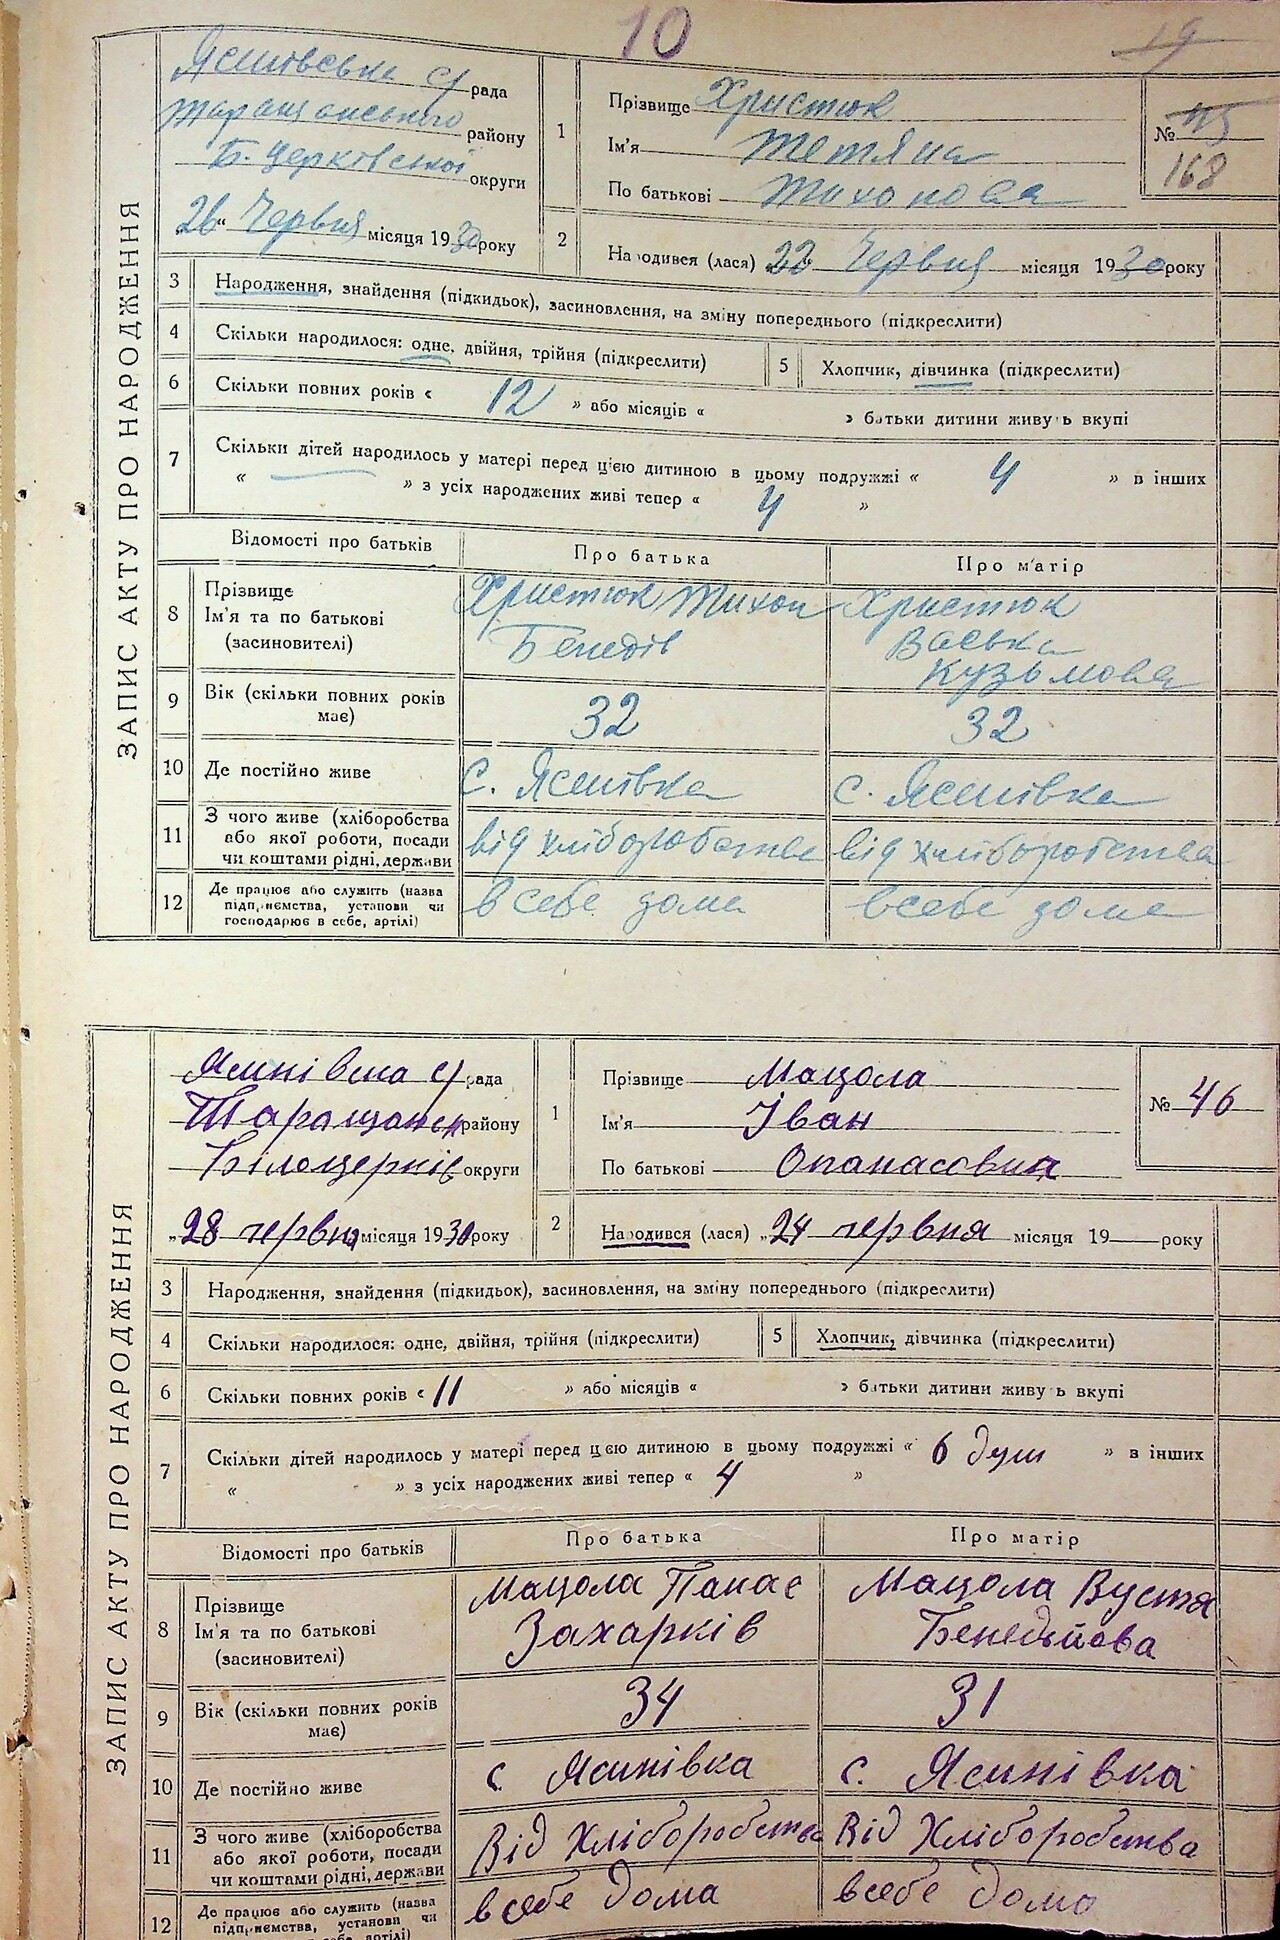 10
19
ЗАПИС АКТУ ПРО НАРОДЖЕННЯ
Ясинівська с/рада
Таращанського району
Б-Церківської округи
26" Червня місяця 1930 року
1 Прізвище Христюк
Ім'я Тетяна
По батькові Тихонова
№ 45
168
2 Народився (лася) 22 Червня місяця 1930 року
3 Народження, знайдення (підкидьок), засиновлення, на зміну попереднього (підкреслити)
4 Скільки народилося: одне, двійня, трійня (підкреслити) 5 Хлопчик, дівчинка (підкреслити)
6 Скільки повних років « 12 » або місяців « » батьки дитини живуть вкупі
7 Скільки дітей народилось у матері перед цією дитиною в цьому подружжі « 4 » в інших
« — » з усіх народжених живі тепер « 4 »
Відомості про батьків Про батька Про матір
8 Прізвище Христюк Тихон Христюк
Ім'я та по батькові Васька
(засиновителі) Бенедів Кузьмова
9 Вік (скільки повних років має) 32 32
10 Де постійно живе с. Ясинівка с. Ясинівка
11 З чого живе (хліборобства
або якої роботи, посади
чи коштами рідні, держави від хліборобства від хліборобства
12 Де працює або служить (назва
підприємства, установи чи
господарює в себе, артілі) в себе дома в себе дома
ЗАПИС АКТУ ПРО НАРОДЖЕННЯ
с/рада
Таращанськ району
Білоцерків округи
„28 червня місяця 1930 року
1 Прізвище Мацола
Ім'я Іван
По батькові Опанасович
№ 46
2 Народився (лася) „24 червня місяця 19 — року
3 Народження, знайдення (підкидьок), засиновлення, на зміну попереднього (підкреслити)
4 Скільки народилося: одне, двійня, трійня (підкреслити) 5 Хлопчик, дівчинка (підкреслити)
6 Скільки повних років « 11 » або місяців « » батьки дитини живуть вкупі
7 Скільки дітей народилось у матері перед цією дитиною в цьому подружжі « 6 душ » в інших
« » з усіх народжених живі тепер « 4 »
Відомості про батьків Про батька Про матір
8 Прізвище Мацола Панас Мацола Вустя
Ім'я та по батькові Захарків Бенедьйова
(засиновителі)
9 Вік (скільки повних років має) 34 31
10 Де постійно живе с Ясинівка с. Ясинівка
11 З чого живе (хліборобства
або якої роботи, посади
чи коштами рідні, держави Від Хліборобства Від Хліборобства
12 Де працює або служить (назва
підприємства, установи чи
в себе, артілі) в себе дома в себе дома